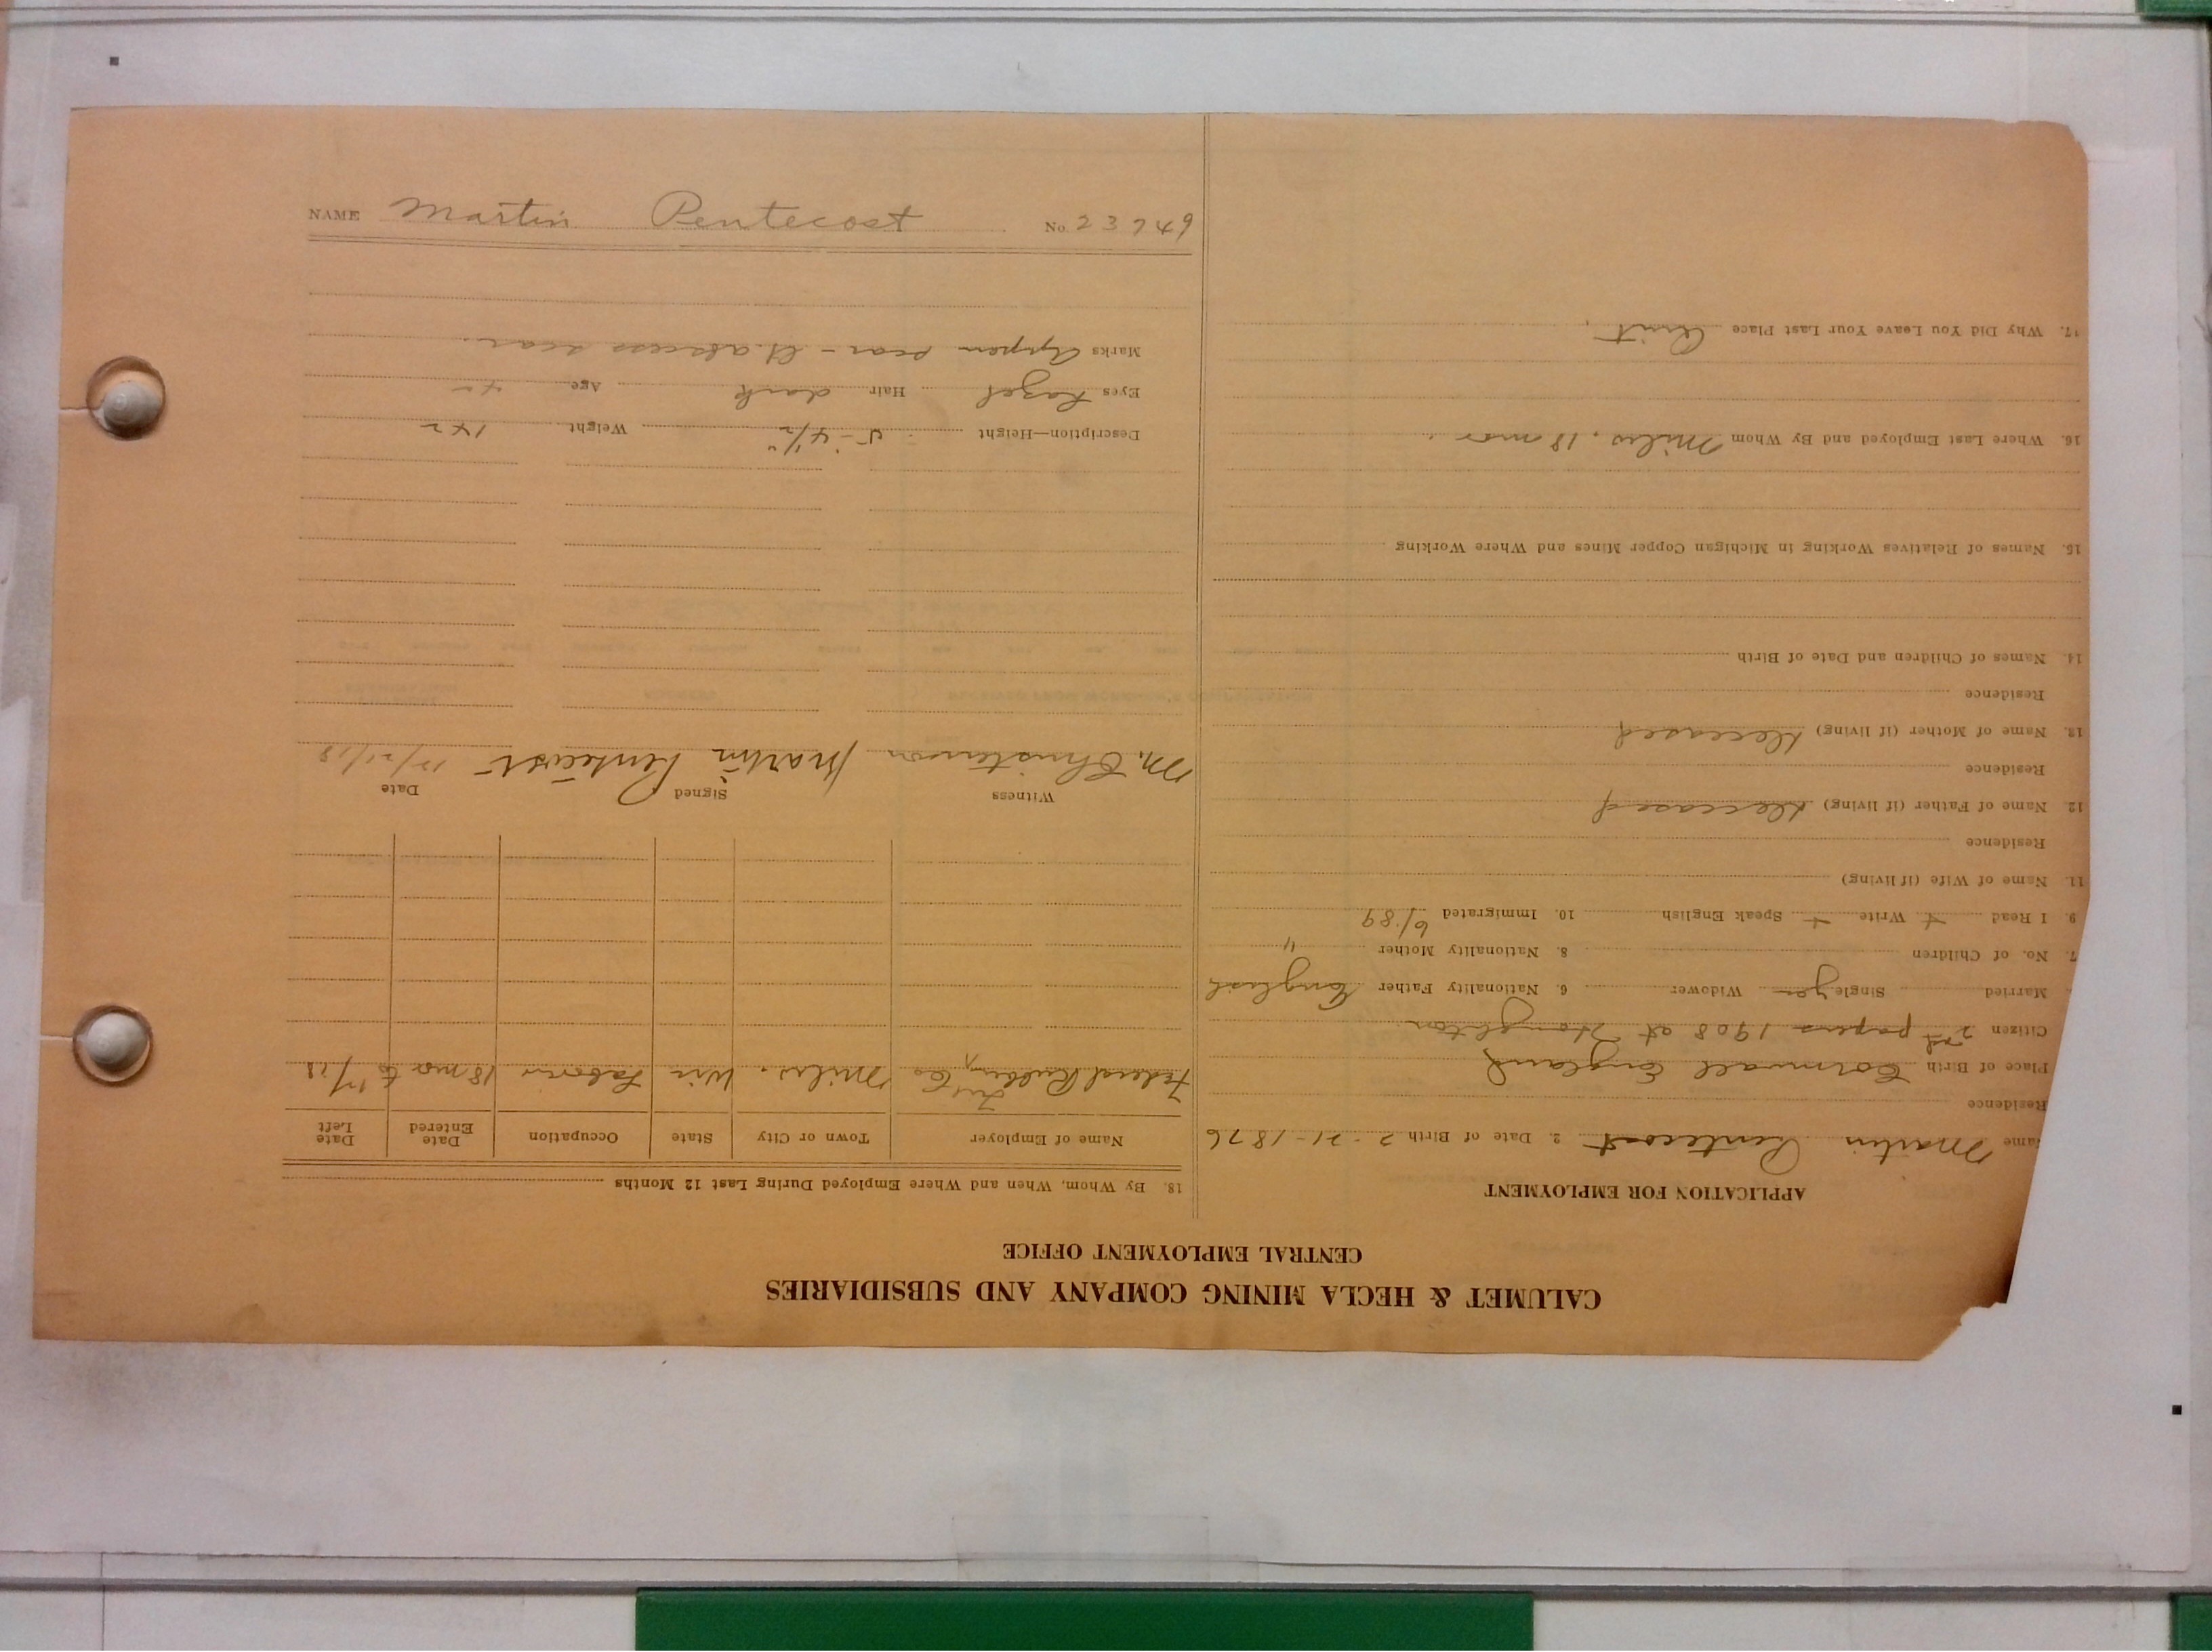 CALUMET & HECLA MINING COMPANY AND SUBSIDIARIES
CENTRAL EMPLOYMENT OFFICE
APPLICATION FOR EMPLOYMENT
ame Martin Pentecost 2. Date of Birth 2-21-1876
Residence
Place of Birth Cornwall England
Citizen 2nd papers 1908 at Houghton
Married Single yes Widower 6. Nationality Father English
7. No. of Children 8. Nationality Mother "
9. I Read + Write + Speak English 10. Immigrated 6/89
11. Name of Wife (if living)
Residence
12. Name of Father (if living) deceased
Residence
13. Name of Mother (if living) deceased
Residence
14. Names of Children and Date of Birth
15. Names of Relatives Working in Michigan Copper Mines and Where Working
16. Where Last Employed and By Whom Milw. 18 mos.
17. Why Did You Leave Your Last Place Quit.
18. By Whom, When and Where Employed During Last 12 Months
Name of Employer Town or City State Occupation Date Entered Date Left
Federal Rubber Co Milw. Wis Laborer 18 mo to
Witness Signed Date
M. Christenson Martin Pentecost 12/21/18
Description—Height 5-4½" Weight 142
Eyes hazel Hair dark Age 42
Marks Appen scar - abscess scar.
NAME Martin Pentecost No. 23749